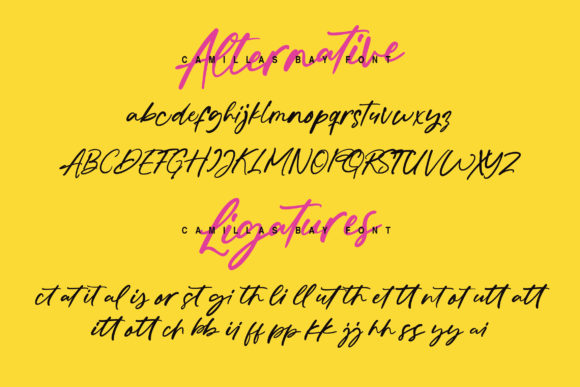 Alternative
CAMILLAS BAY FONT
abcdefghijklmnopqrstuvwxyz
ABCDEFGHIJKLMNOPQRSTUVWXYZ
Ligatures
CAMILLAS BAY FONT
ct at it al is or st gi th li ll ut th et tt nt ot utt att
itt ott ch bb ii ff pp kk jj hh ss yy ai